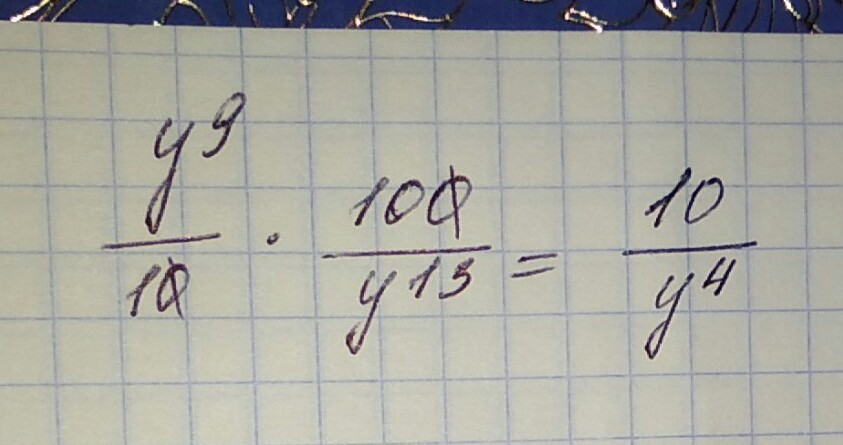 y^9/10 · 100/y^13 = 10/y^4